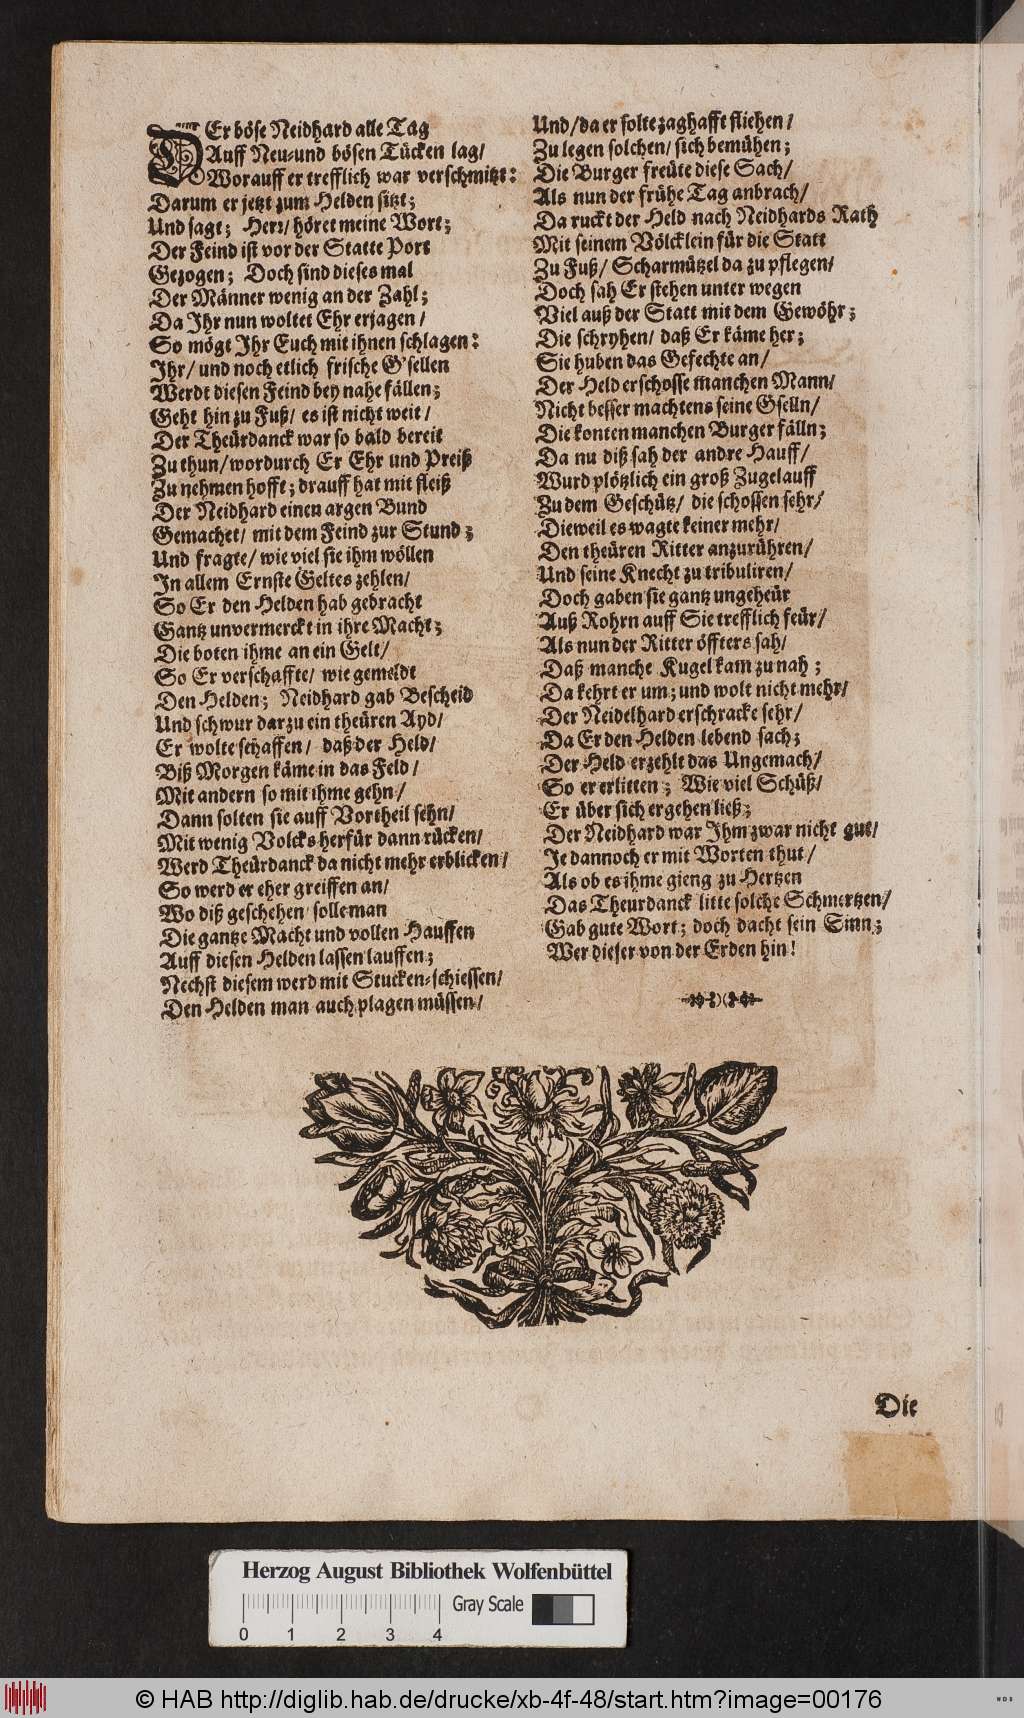 DEr böse Neidhard alle Tag
Auff Neu-und bösen Tücken lag/
Worauff er trefflich war verschmitzt:
Darum er jetzt zum Helden sitzt;
Und sagt; Herr/ höret meine Wort;
Der Feind ist vor der Statte Port
Gezogen; Doch sind dieses mal
Der Männer wenig an der Zahl;
Da Ihr nun woltet Ehr erjagen/
So mögt Ihr Euch mit ihnen schlagen:
Ihr/ und noch etlich frische G'sellen
Werdt diesen Feind bey nahe fällen;
Geht hin zu Fuß/ es ist nicht weit/
Der Theürdanck war so bald bereit
Zu thun/ wordurch Er Ehr und Preiß
Zu nehmen hofft; drauff hat mit fleiß
Der Neidhard einen argen Bund
Gemachet/ mit dem Feind zur Stund;
Und fragte/ wie viel sie ihm wöllen
In allem Ernste Geltes zehlen/
So Er den Helden hab gebracht
Gantz unvermerckt in ihre Macht;
Die boten ihme an ein Gelt/
So Er verschaffte/ wie gemeldt
Den Helden; Neidhard gab Bescheid
Und schwur darzu ein theüren Ayd/
Er wolte schaffen/ daß der Held/
Biß Morgen käme in das Feld/
Mit andern so mit ihme gehn/
Dann solten sie auff Vortheil sehn/
Mit wenig Volcks herfür dann rücken/
Werd Theürdanck da nicht mehr erblicken/
So werd er eher greiffen an/
Wo diß geschehen/ solle man
Die gantze Macht und vollen Hauffen
Auff diesen Helden lassen lauffen;
Nechst diesem werd mit Stucken-schiessen/
Den Helden man auch plagen müssen/
Und/ da er solte zaghafft fliehen/
Zu legen solchen/ sich bemühen;
Die Burger freüte diese Sach/
Als nun der frühe Tag anbrach/
Da ruckt der Held nach Neidhards Rath
Mit seinem Völcklein für die Statt
Zu Fuß/ Scharmützel da zu pflegen/
Doch sah Er stehen unter wegen
Viel auß der Statt mit dem Gewöhr;
Die schryhen/ daß Er käme her;
Sie huben das Gefechte an/
Der Held erschosse manchen Mann/
Nicht besser machtens seine Gselln/
Die konten manchen Burger fälln;
Da nu diß sah der andre Hauff/
Wurd plötzlich ein groß Zugelauff
Zu dem Geschütz/ die schossen sehr/
Dieweil es wagte keiner mehr/
Den theüren Ritter anzurühren/
Und seine Knecht zu tribuliren/
Doch gaben sie gantz ungeheür
Auß Rohrn auff Sie trefflich feür/
Als nun der Ritter öffters sah/
Daß manche Kugel kam zu nah;
Da kehrt er um; und wolt nicht mehr/
Der Neidelhard erschracke sehr/
Da Er den Helden lebend sach;
Der Held erzehlt das Ungemach/
So er erlitten; Wie viel Schüß/
Er über sich ergehen ließ;
Der Neidhard war Ihm zwar nicht gut/
Je dannoch er mit Worten thut/
Als ob es ihme gieng zu Hertzen
Das Theurdanck litte solche Schmertzen/
Gab gute Wort; doch dacht sein Sinn;
Wer dieser von der Erden hin!
Die
Herzog August Bibliothek Wolfenbüttel
Gray Scale
0 1 2 3 4
© HAB http://diglib.hab.de/drucke/xb-4f-48/start.htm?image=00176